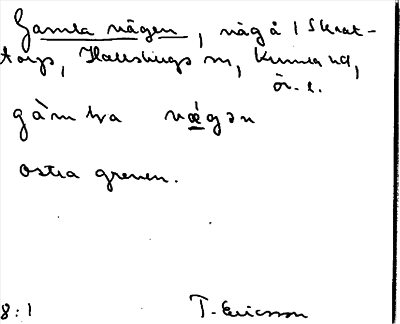 Gamla vägen, väg å 1 Skrat-
torp, Hallsbergs sn, Kumla hd,
Ör. l.
gàmla væ̀gən
östra grenen.
8:1 T. Ericsson